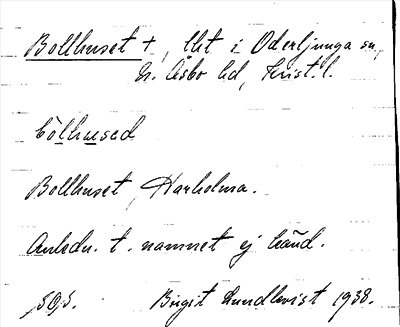 Bollhuset +, lht i Oderljunga sn,
N. Åsbo hd, Krist. l.
bòlhused
Bollhuset, Harholma.
Anledn. t. namnet ej känd.
SOJ. Birgit Lundkvist 1938.